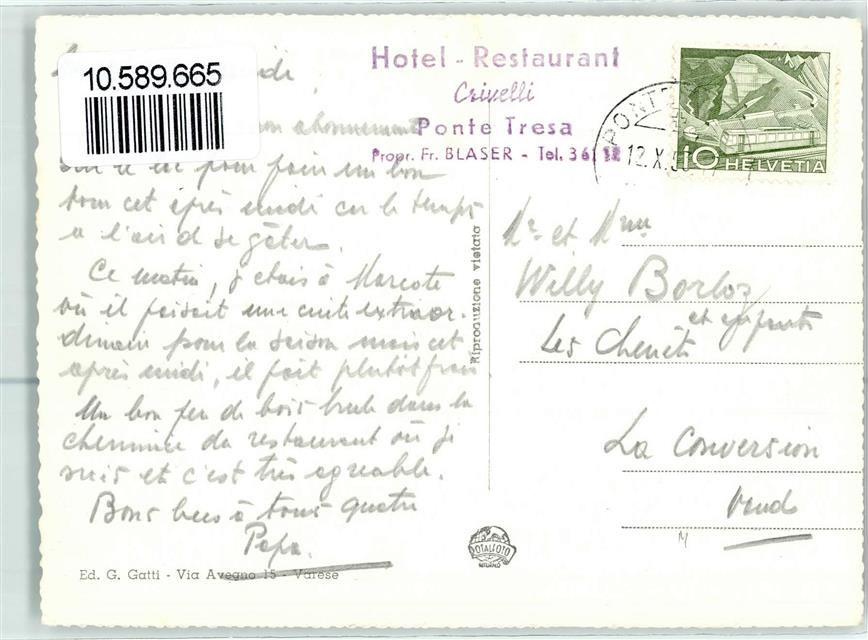 10.589.665
Hotel - Restaurant
Crivelli
Ponte Tresa
Propr. Fr. BLASER - Tel. 3 61 12
PONT
12.X.5
10 HELVETIA
midi,
mon abonnement
pour faire un bon
tour cet après midi car le temps
a l'air de se gâter.
Ce matin, j'étais à Morcote
où il faisait une cuite extraor-
dinaire pour la saison mais cet
après midi, il fait plutôt frais
Un bon feu de bois brule dans la
cheminée du restaurant où je
suis et c'est très agréable.
Bons becs à tous quatre
Papa.
Ed. G. Gatti - Via Avegno 15 - Varese
Riproduzione vietata
Mr et Mme
Willy Borloz
et enfants
Les Chenêts
La Conversion
Vaud
ROTALFOTO
MILANO